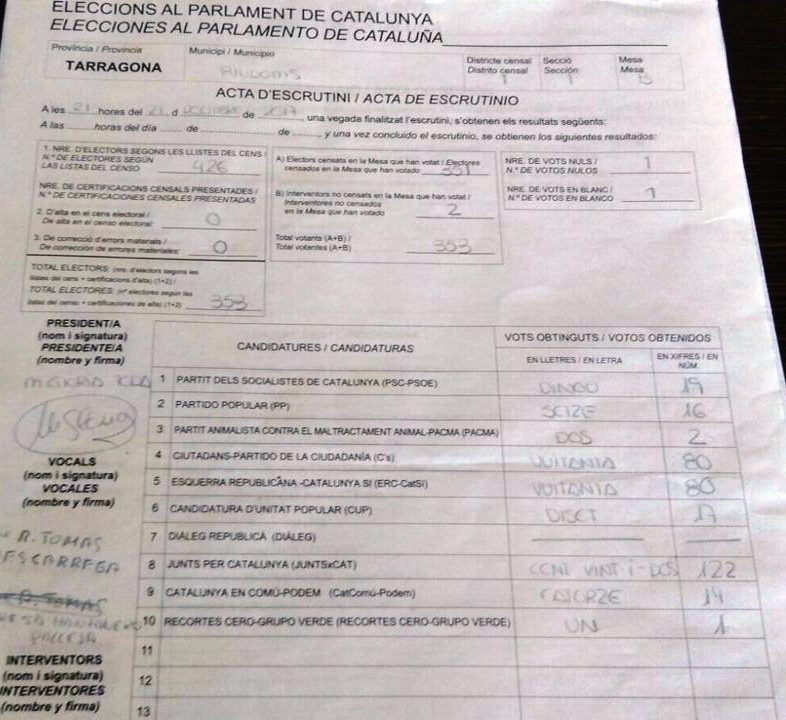 ELECCIONS AL PARLAMENT DE CATALUNYA
ELECCIONES AL PARLAMENTO DE CATALUÑA
Província / Provincia
TARRAGONA
Municipi / Municipio
RIUDOMS
Districte censal
Distrito censal
1
Secció
Sección
1
Mesa
Mesa
B
ACTA D'ESCRUTINI / ACTA DE ESCRUTINIO
A les 21 hores del 21 d DESEMBRE de 2017, una vegada finalitzat l'escrutini, s'obtenen els resultats següents:
A las ........ horas del día ....... de ........................ de ........, y una vez concluido el escrutinio, se obtienen los siguientes resultados:
1. NRE. D'ELECTORS SEGONS LES LLISTES DEL CENS /
N.º DE ELECTORES SEGÚN
LAS LISTAS DEL CENSO 426
NRE. DE CERTIFICACIONS CENSALS PRESENTADES /
N.º DE CERTIFICACIONES CENSALES PRESENTADAS
2. D'alta en el cens electoral /
De alta en el censo electoral: 0
3. De correcció d'errors materials /
De corrección de errores materiales: 0
TOTAL ELECTORS: (nre. d'electors segons les
llistes del cens + certificacions d'alta) (1+2) /
TOTAL ELECTORES: (nº electores según las
listas del censo + certificaciones de alta) (1+2) 353
A) Electors censats en la Mesa que han votat / Electores
censados en la Mesa que han votado 351
B) Interventors no censats en la Mesa que han votat /
Interventores no censados
en la Mesa que han votado 2
Total votants (A+B) /
Total votantes (A+B) 353
NRE. DE VOTS NULS /
N.º DE VOTOS NULOS 1
NRE. DE VOTS EN BLANC /
N.º DE VOTOS EN BLANCO 1
PRESIDENT/A
(nom i signatura)
PRESIDENTE/A
(nombre y firma)
VOCALS
(nom i signatura)
VOCALES
(nombre y firma)
R. TOMAS
ESCARREGA
R. TOMAS
INTERVENTORS
(nom i signatura)
INTERVENTORES
(nombre y firma)
CANDIDATURES / CANDIDATURAS
VOTS OBTINGUTS / VOTOS OBTENIDOS
EN LLETRES / EN LETRA
EN XIFRES / EN NÚM.
1 PARTIT DELS SOCIALISTES DE CATALUNYA (PSC-PSOE) DINOU 19
2 PARTIDO POPULAR (PP) SETZE 16
3 PARTIT ANIMALISTA CONTRA EL MALTRACTAMENT ANIMAL-PACMA (PACMA) DOS 2
4 CIUTADANS-PARTIDO DE LA CIUDADANÍA (C's) VUITANTA 80
5 ESQUERRA REPUBLICANA -CATALUNYA SI (ERC-CatSí) VUITANTA 80
6 CANDIDATURA D'UNITAT POPULAR (CUP) DISET 17
7 DIÀLEG REPUBLICÀ (DIÀLEG)
8 JUNTS PER CATALUNYA (JUNTSxCAT) CENT VINT-I-DOS 122
9 CATALUNYA EN COMÚ-PODEM (CatComú-Podem) CATORZE 14
10 RECORTES CERO-GRUPO VERDE (RECORTES CERO-GRUPO VERDE) UN 1
11
12
13